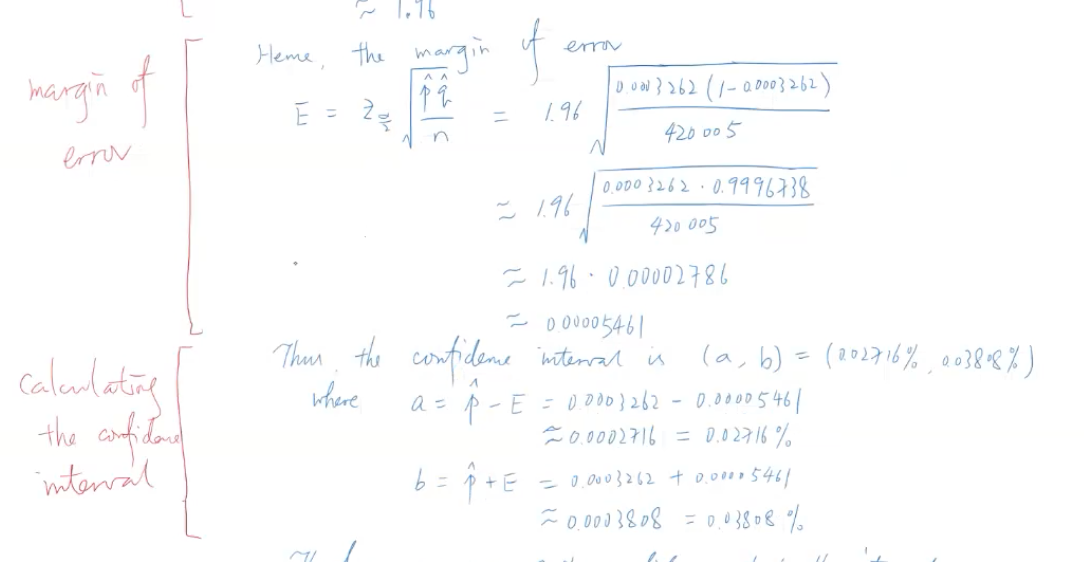 ≈ 1.96
margin of error
Hence, the margin of error
E = z_{α/2} √(p̂ q̂ / n) = 1.96 √(0.0003262 (1 - 0.0003262) / 420005)
≈ 1.96 √(0.0003262 · 0.9996738 / 420005)
≈ 1.96 · 0.00002786
≈ 0.00005461
calculating the confidence interval
Thus, the confidence interval is (a, b) = (0.02716%, 0.03808%)
where a = p̂ - E = 0.0003262 - 0.00005461
≈ 0.0002716 = 0.02716%
b = p̂ + E = 0.0003262 + 0.00005461
≈ 0.0003808 = 0.03808%